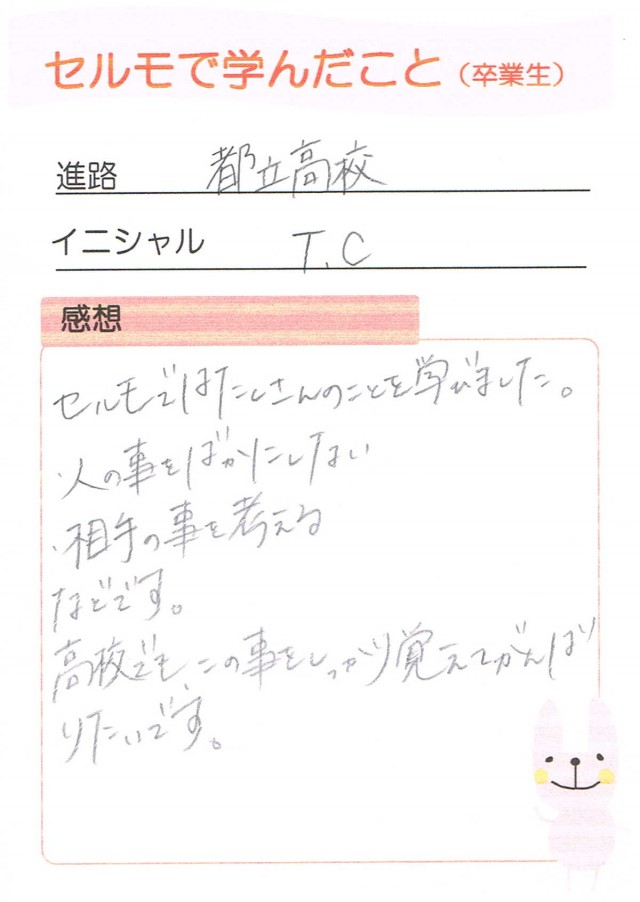 セルモで学んだこと（卒業生）
進路 都立高校
イニシャル T.C
感想
セルモではたくさんのことを学びました。
・人の事をばかにしない
・相手の事を考える
などです。
高校でも、この事をしっかり覚えてがんば
りたいです。